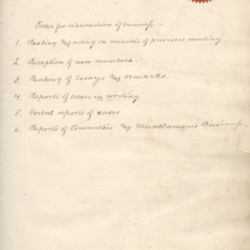 Order for transaction of business -
1. Reading & acting on minutes of previous meeting
2. Reception of new members.
3. Reading of Essays & remarks.
4. Reports of cases in writing
5. Verbal reports of cases
6. Reports of Committees & Miscellaneous Business